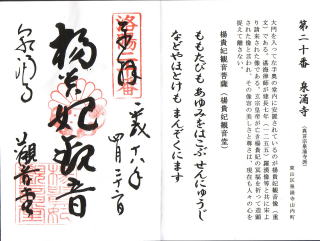 第二十番 泉涌寺
(真言宗泉涌寺派)
東山区泉涌寺山内町
大門を入って左手奥の堂内に安置されているのが楊貴妃観音像(重
文)である。
り請来された像である。玄宗皇帝が亡き楊貴妃の冥福を祈って造顕
された像と言われ、その像容の美しさと尊さは、現在も人々の心を
捉えて離さない。
楊貴妃観音菩薩(楊貴妃観音堂)
ももたびも あゆみをはこぶ せんにゅうじ
などやほとけも まんぞくにます
平成十八年
四月二十二日
奉拝
楊貴妃観音
泉涌寺
観音堂